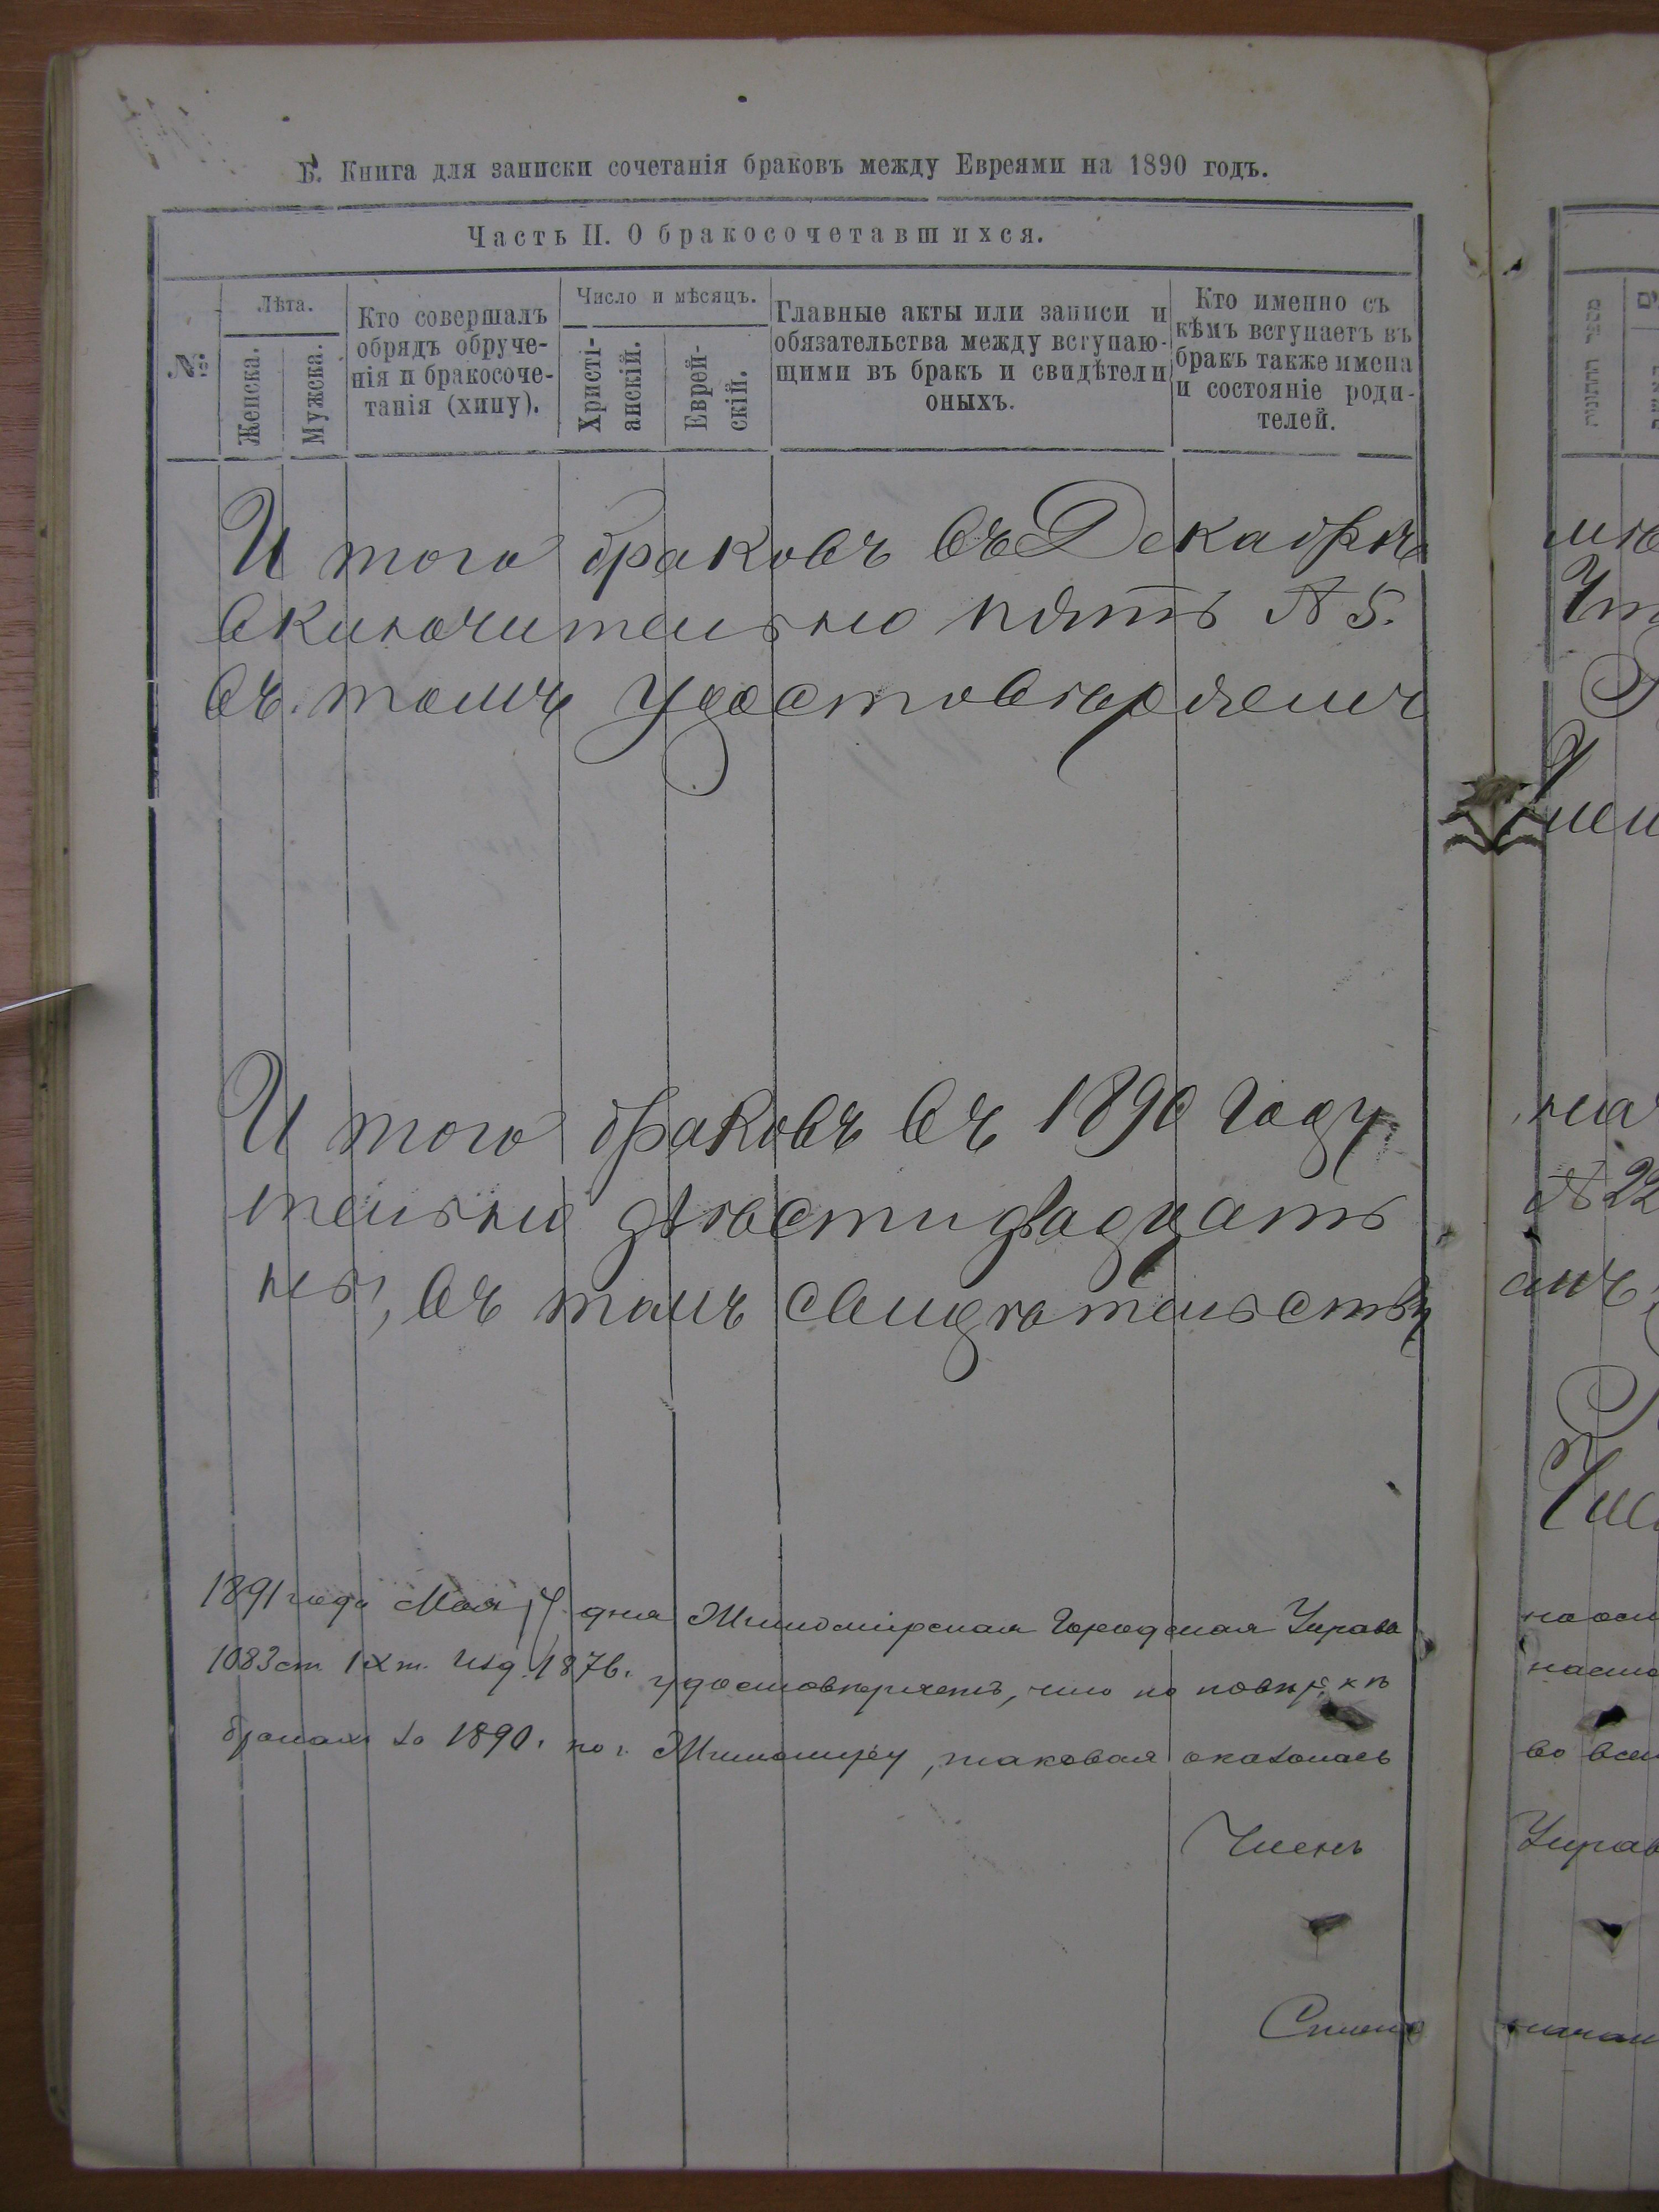 Б. Книга для записки сочетанія браковъ между Евреями на 1890 годъ.
Часть II. О бракосочетавшихся.
№
Лѣта.
Женска.
Мужска.
Кто совершалъ
обрядъ обруче-
нія и бракосоче-
танія (хипу).
Число и мѣсяцъ.
Христі-
анскій.
Еврей-
скій.
Главные акты или записи и
обязательства между вступаю-
щими въ бракъ и свидѣтели
оныхъ.
Кто именно съ
кѣмъ вступаетъ въ
бракъ также имена
и состояніе роди-
телей.
И того браковъ въ Декабрѣ
включительно пять № 5.
въ томъ удостовѣряемъ
И того браковъ въ 1890 году
тельно двѣсти двадцать
въ томъ свидѣтельству
1891 года Мая дня Житомірская Городская Управа
1083 ст. IX т. изд. 1876. удостовѣряетъ, что по
бракахъ за 1890. по г. Житоміру, таковая оказалась
Членъ
Управ
№ 22
во всем